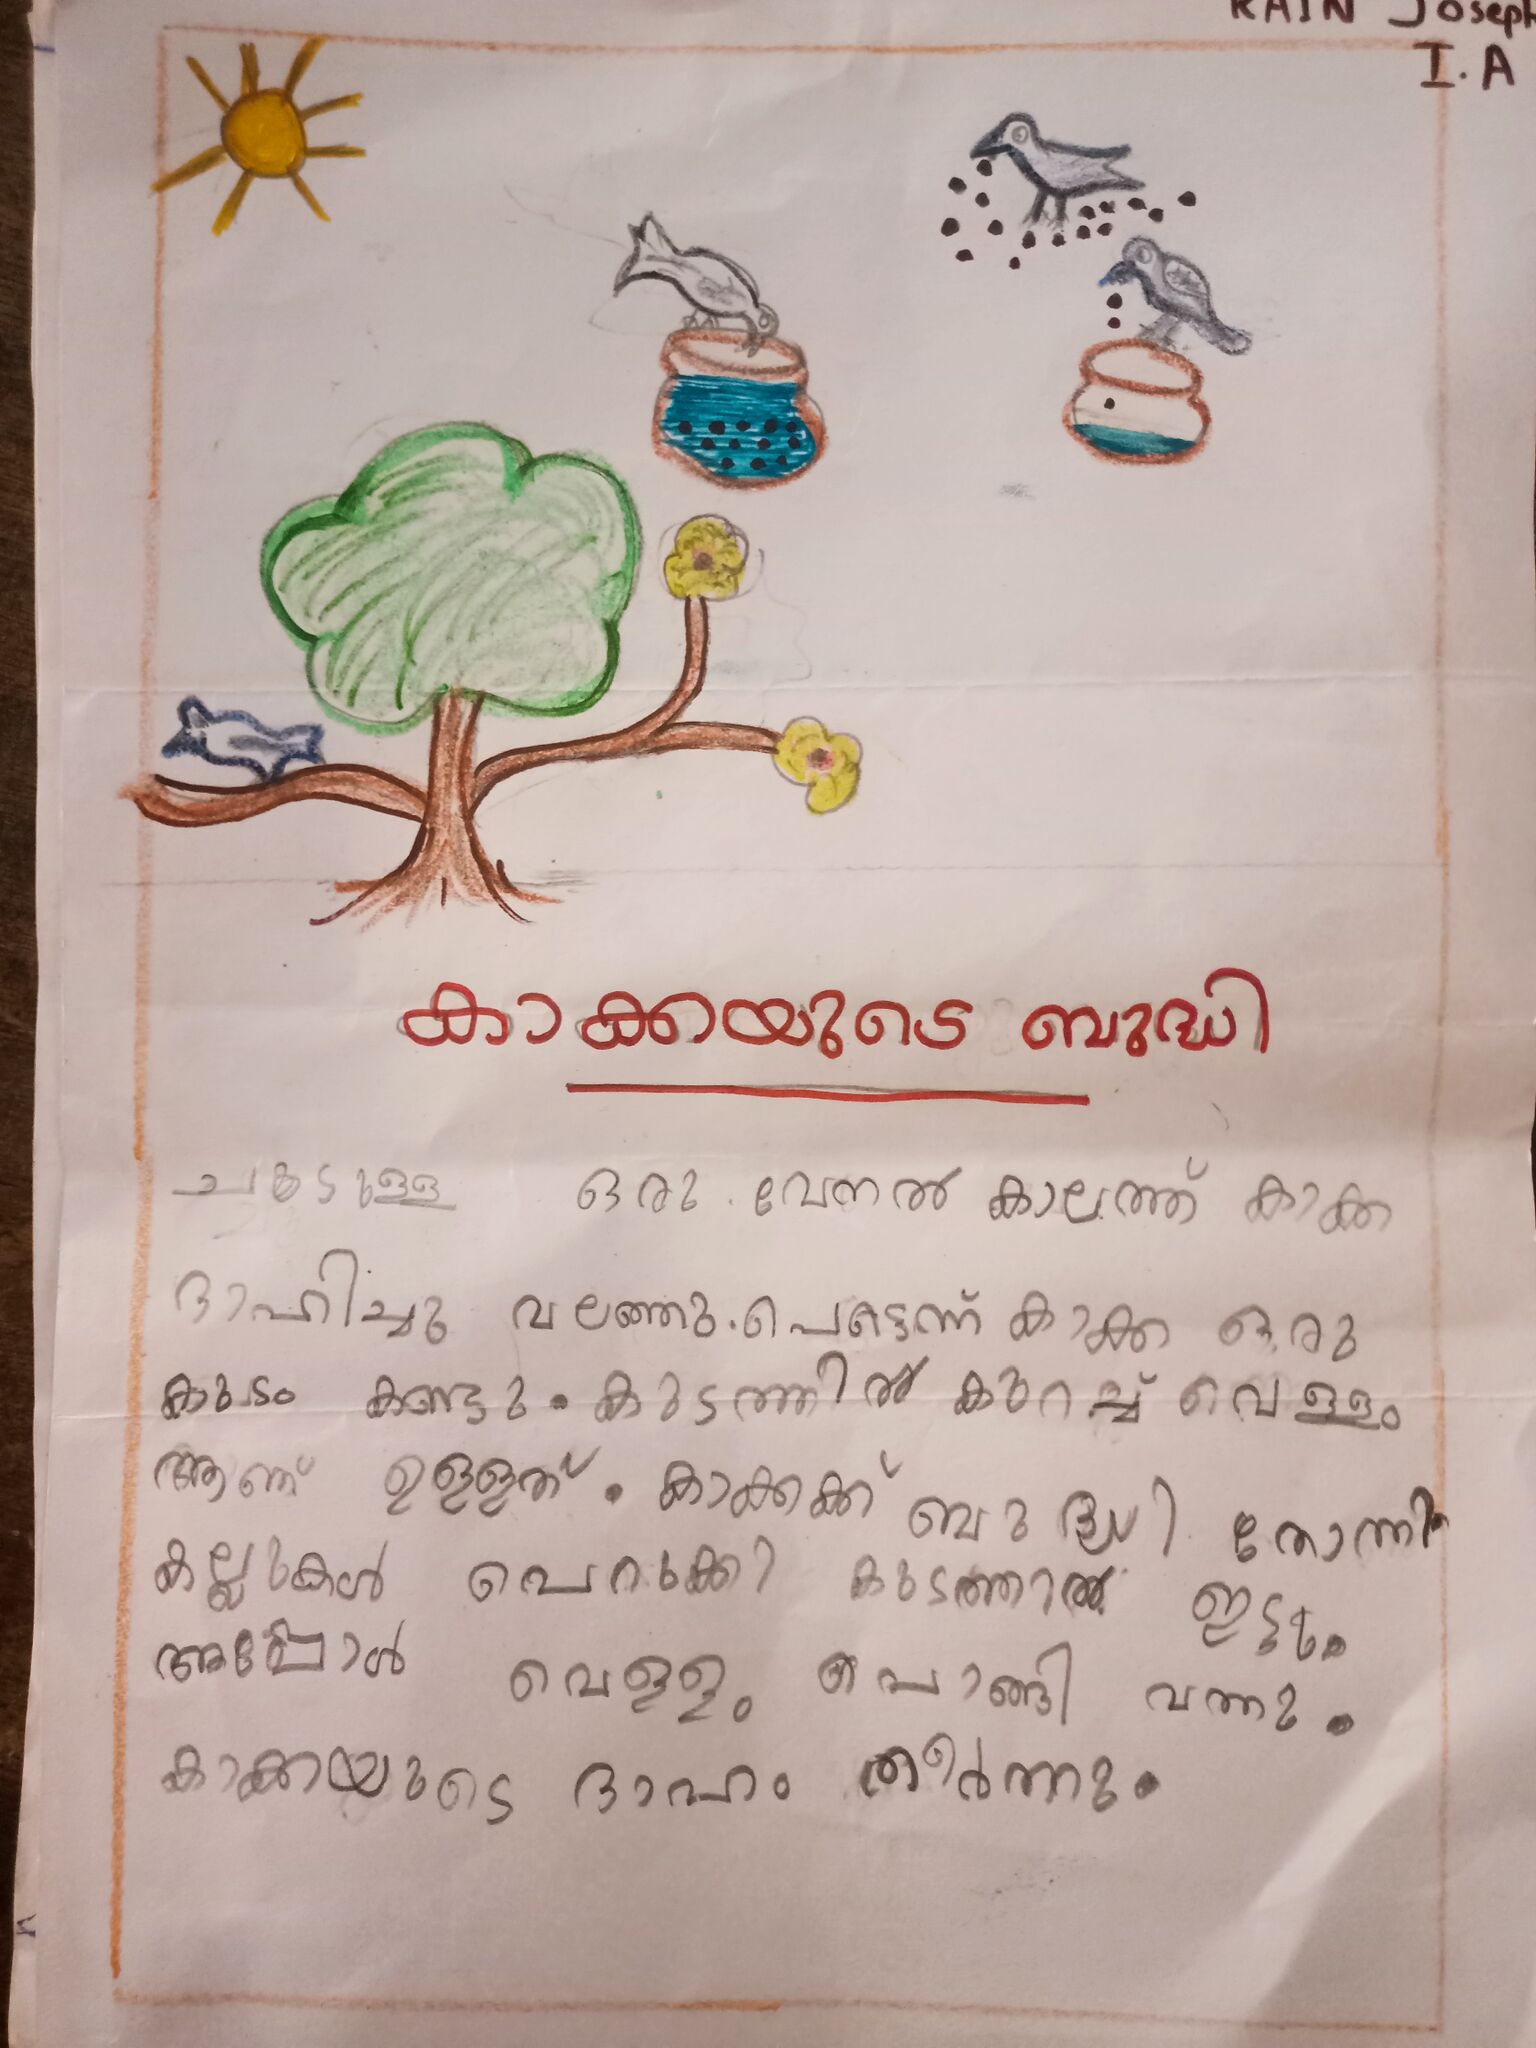 RAIN Joseph
I.A
കാക്കയുടെ ബുദ്ധി
ചൂടുള്ള ഒരു വേനൽ കാലത്ത് കാക്ക
ദാഹിച്ചു വലഞ്ഞു. പെട്ടെന്ന് കാക്ക ഒരു
കുടം കണ്ടു. കുടത്തിൽ കുറച്ച് വെള്ളം
ആണ് ഉള്ളത്. കാക്കക്ക് ബുദ്ധി തോന്നി
കല്ലുകൾ പെറുക്കി കുടത്തിൽ ഇട്ടു.
അപ്പോൾ വെള്ളം പൊങ്ങി വന്നു.
കാക്കയുടെ ദാഹം തീർന്നു.